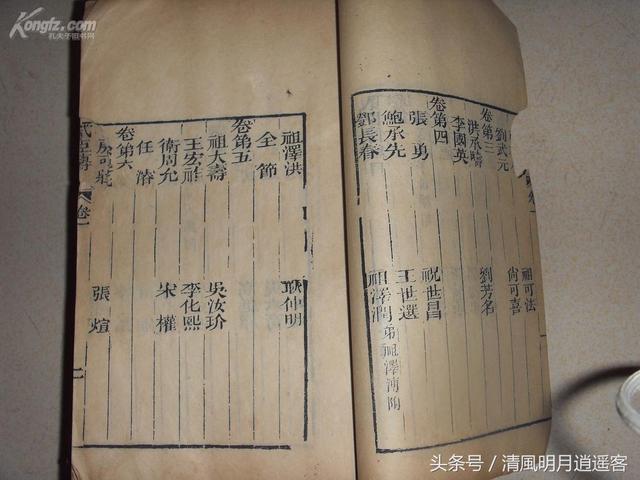 劉武元 祖可法
卷第三
洪承疇 尚可喜
李國英 劉芳名
卷第四
張勇 祝世昌
鮑承先 王世選
鄧長春 祖澤潤弟祖澤溥附
祖澤洪 耿仲明
全節
卷第五
祖大壽 吳汝玠
王宏祚 李化熙
衛周允 宋權
任濬
卷第六
房可壯 張煊
貳臣傳 卷一 二
Kongfz.com
孔夫子旧书网
头条号 / 清風明月逍遥客